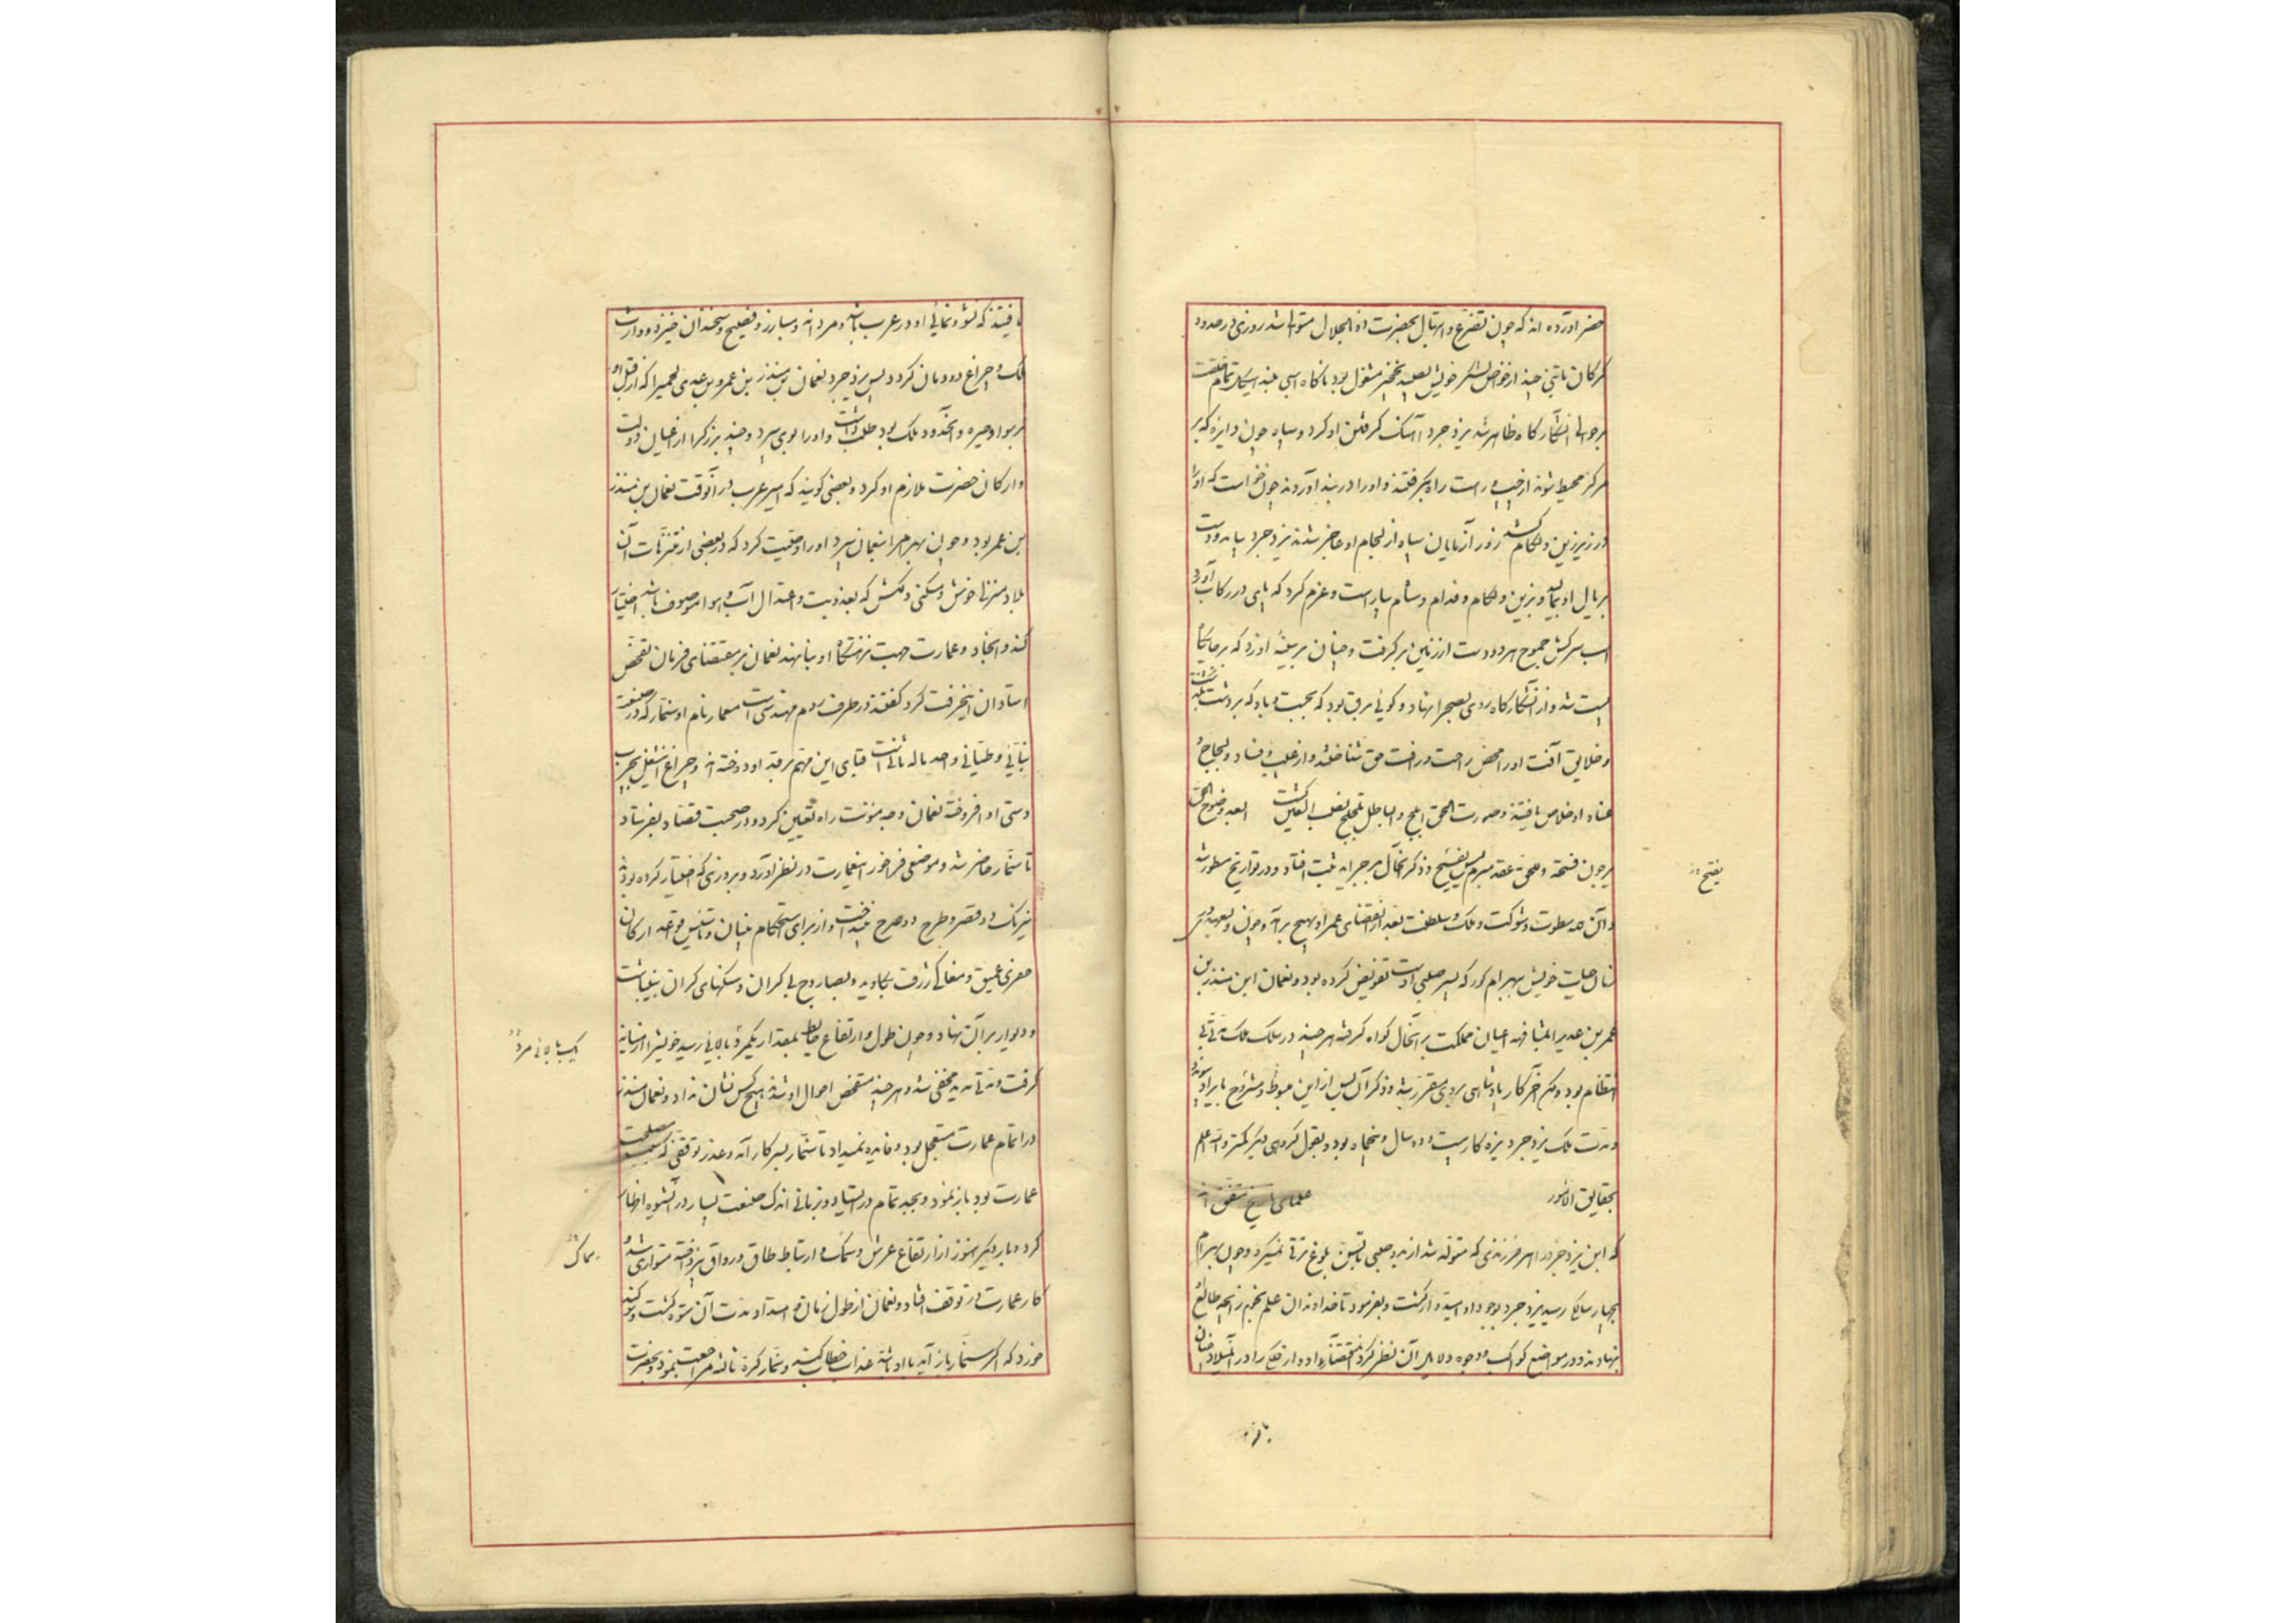 چون تضرع و ابتهال بحضرت ذو الجلال متواتر شد روزی در حدود
کرکان با تنی چند از خواص لشکر خویش بصید نخجیر مشغول بود ناکاه اسپی بلند تمام خلقت
انشکارکاه ظاهر شد یزدجرد آهنک کرفتن او کرد و سپاه چون دایره که بر
مرکز محیط شوند از چپ و راست راه بکرفتند و اورا در بند آوردند چون خواست که اورا
در زیر زین و لکام کشد زور آزمایان سپاه از لجام او عاجز شدند یزدجرد بیامد و دست
بر یال او بمالید و بزین و لکام بیاراست و عزم کرد که پای در رکاب آورد
اسب سرکش جموح هر دو دست از زمین بر کرفت و چنان بر سینه او زد که بر جایگاه
پست شد و از آن شکارکاه روی بصحرا نهاد و کوئی برق بود که بجست و باد که بر دشت بگذشت
و خلایق آفت اورا محض راحت و رافت حق شناختند و از فساد و لجاج و
عناد او خلاص یافتند و صورت الحق ابلج والباطل لجلج کشت
و ذکر آنحال بر جراید ثبت افتاد و در تواریخ مسطور شد
و آن همه سطوت و شوکت و ملک و سلطنت بعد از انقضای عمر او بهیچ بر آمد و چون ولیعهدی
حیات خویش ببهرام کور که پسر صلبی اوست تفویض کرده بود و نعمان ابن منذر بن
عمر بن عدی را بمشافهه اعیان مملکت بر آنحال کواه کرفته هر چند در سلک ملک
انتظام بود و هم آخر کار پادشاهی بروی مقرر شد و ذکر آن پس از این مبسوط و مشروح بایراد پیوندد
و مدت ملک یزدجرد بزه کار بیست و دو سال و پنجماه بود و بقول کروهی دیگر کمتر والله اعلم
بحقایق الامور علمای تاریخ متفق اند
که این یزدجرد را هر فرزندی که متولد شد از بدو بلوغ ترقی نمیکرد و چون بهرام
یزدجرد بوجود او امیدوار کشت و بفرمود تا خداوندان علم نجوم زایجه طالع
بنهادند و در مواضع کواکب و وجوه دلایل آن نظر کرده
یفتح
یافتند که نشو و نمای او در عرب باشد و مردانه و مبارز و فصیح و سخندان خیزد و وارث
ملک و چراغ دودمان کردد پس یزدجرد نعمان بن منذر بن عمرو بن عدی اللخمی را که از قبل او
بر سواد حیره و آنحدود ملک بود طلب داشت و اورا بوی سپرد و چند بزرکرا از اعیان دولت
و ارکان حضرت ملازم او کرد و بعضی کویند که امیر عرب در آنوقت نعمان بن منذر
بن عمر بود و چون بهرام را بنعمان سپرد اورا وصیت کرد که در بعضی از متنزهات آن
بلاد منزلی خوش و مسکنی دلکش که بعذوبت و اعتدال آب و هوا موصوف باشد اختیار
کند و عمارت جهت نزهتکاه او بنا نهند نعمان بر مقتضای فرمان تفحص
استادان این حرفت کرد کفتند در طرف روم مهندسی است معمار نام او سنمار که در صنعت
بنائی و طیانی واحد ماله ثانیست قبای این مهم بر قد او دوخته اند و چراغ این شغل بچرب
دستی او افروخته نعمان وجه مؤنت راه تعیین کرد و در صحبت قصاد بفرستاد
تا سنمار حاضر شد و موضعی فراخور این عمارت در نظر آورد و بروزی که اختیار کرده بودند
نیرنک دو قصر و طرح دو صرح انداخت و از برای استحکام بنیان و تاسیس قواعد ارکان
حفری عمیق و مغاکی ژرف بکاوید و بصاروج و سنکهای کران بینباشت
و دیوار بر آن نهاد و چون طول و ارتفاع حایط بمقدار یکمرد بالائی رسید خویشرا از میانه
کرفت و مدتی مدید مختفی شد و هر چند متفحص احوال او شدند هیچکس نشان نداد و نعمان منذر
در اتمام عمارت مستعجل بود و فایده نمیداد تا سنمار بسر کار آمد و عذر توقفی که بسبب مصلحت
عمارت بود باز نمود و بجد تمام در ایستاد و بزمانی اندک صنعت بسیار در آنشیوه اظهار
کرد و بار دیگر هنوز از ارتفاع عرش و سمک و ارتباط طاق و رواق نپرداخته متواری شد و
کار عمارت در توقف افتاد و نعمان از طول زمان و امتداد مدت آن ستوه کشت و سوکند
خورد که اکر سنمار باز آید با او باشد عذاب خطاب کند و سنمار کرة ثالثه مراجعت نمود و بحضرت
یک بالائی مرد
سماک